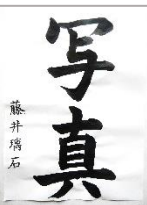 写真
藤井璃石